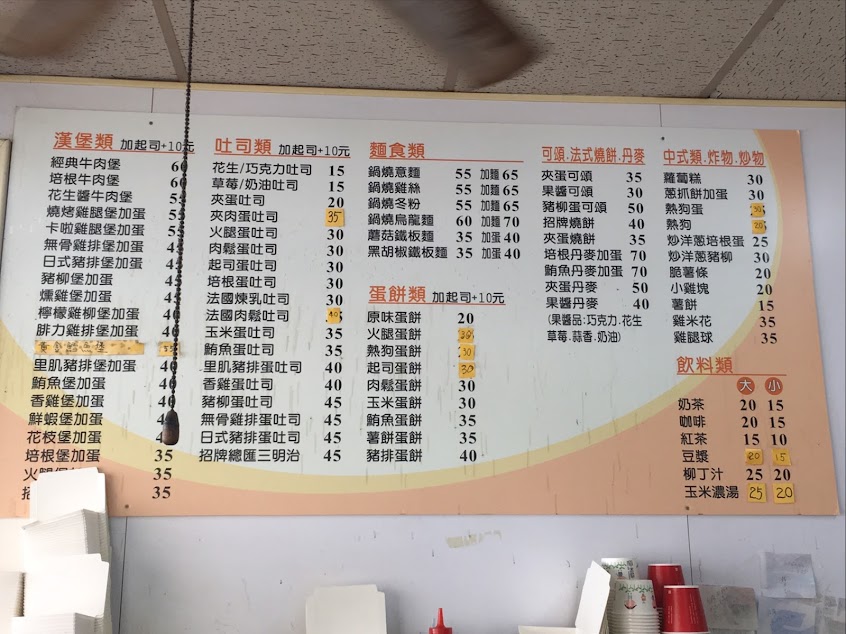 漢堡類 加起司+10元
經典牛肉堡 60
培根牛肉堡 60
花生醬牛肉堡 55
燒烤雞腿堡加蛋 55
卡啦雞腿堡加蛋 55
無骨雞排堡加蛋 45
日式豬排堡加蛋 45
豬柳堡加蛋 45
燻雞堡加蛋 45
檸檬雞柳堡加蛋 40
腓力雞排堡加蛋 40
里肌豬排堡加蛋 40
鮪魚堡加蛋 40
香雞堡加蛋 40
鮮蝦堡加蛋
花枝堡加蛋
培根堡加蛋 35
火腿堡加蛋 35
35
吐司類 加起司+10元
花生/巧克力吐司 15
草莓/奶油吐司 15
夾蛋吐司 20
夾肉蛋吐司 35
火腿蛋吐司 30
肉鬆蛋吐司 30
起司蛋吐司 30
培根蛋吐司 30
法國煉乳吐司 30
法國肉鬆吐司 40
玉米蛋吐司 35
鮪魚蛋吐司 35
里肌豬排蛋吐司 40
香雞蛋吐司 40
豬柳蛋吐司 40
無骨雞排蛋吐司 45
日式豬排蛋吐司 45
招牌總匯三明治 45
麵食類
鍋燒意麵 55 加麵 65
鍋燒雞絲 55 加麵 65
鍋燒冬粉 55 加麵 65
鍋燒烏龍麵 60 加麵 70
蘑菇鐵板麵 35 加蛋 40
黑胡椒鐵板麵 35 加蛋 40
蛋餅類 加起司+10元
原味蛋餅 20
火腿蛋餅 30
熱狗蛋餅 30
起司蛋餅 30
肉鬆蛋餅 30
玉米蛋餅 30
鮪魚蛋餅 35
薯餅蛋餅 35
豬排蛋餅 40
可頌.法式燒餅.丹麥
夾蛋可頌 35
果醬可頌 30
豬柳蛋可頌 50
招牌燒餅 40
夾蛋燒餅 35
培根丹麥加蛋 70
鮪魚丹麥加蛋 70
夾蛋丹麥 50
果醬丹麥 40
(果醬品:巧克力.花生
草莓.蒜香.奶油)
中式類.炸物.炒物
蘿蔔糕 30
蔥抓餅加蛋 30
熱狗蛋 30
熱狗 20
炒洋蔥培根蛋 25
炒洋蔥豬柳 30
脆薯條 20
小雞塊 20
薯餅 15
雞米花 35
雞腿球 35
飲料類
大 小
奶茶 20 15
咖啡 20 15
紅茶 15 10
豆漿 20 15
柳丁汁 25 20
玉米濃湯 25 20